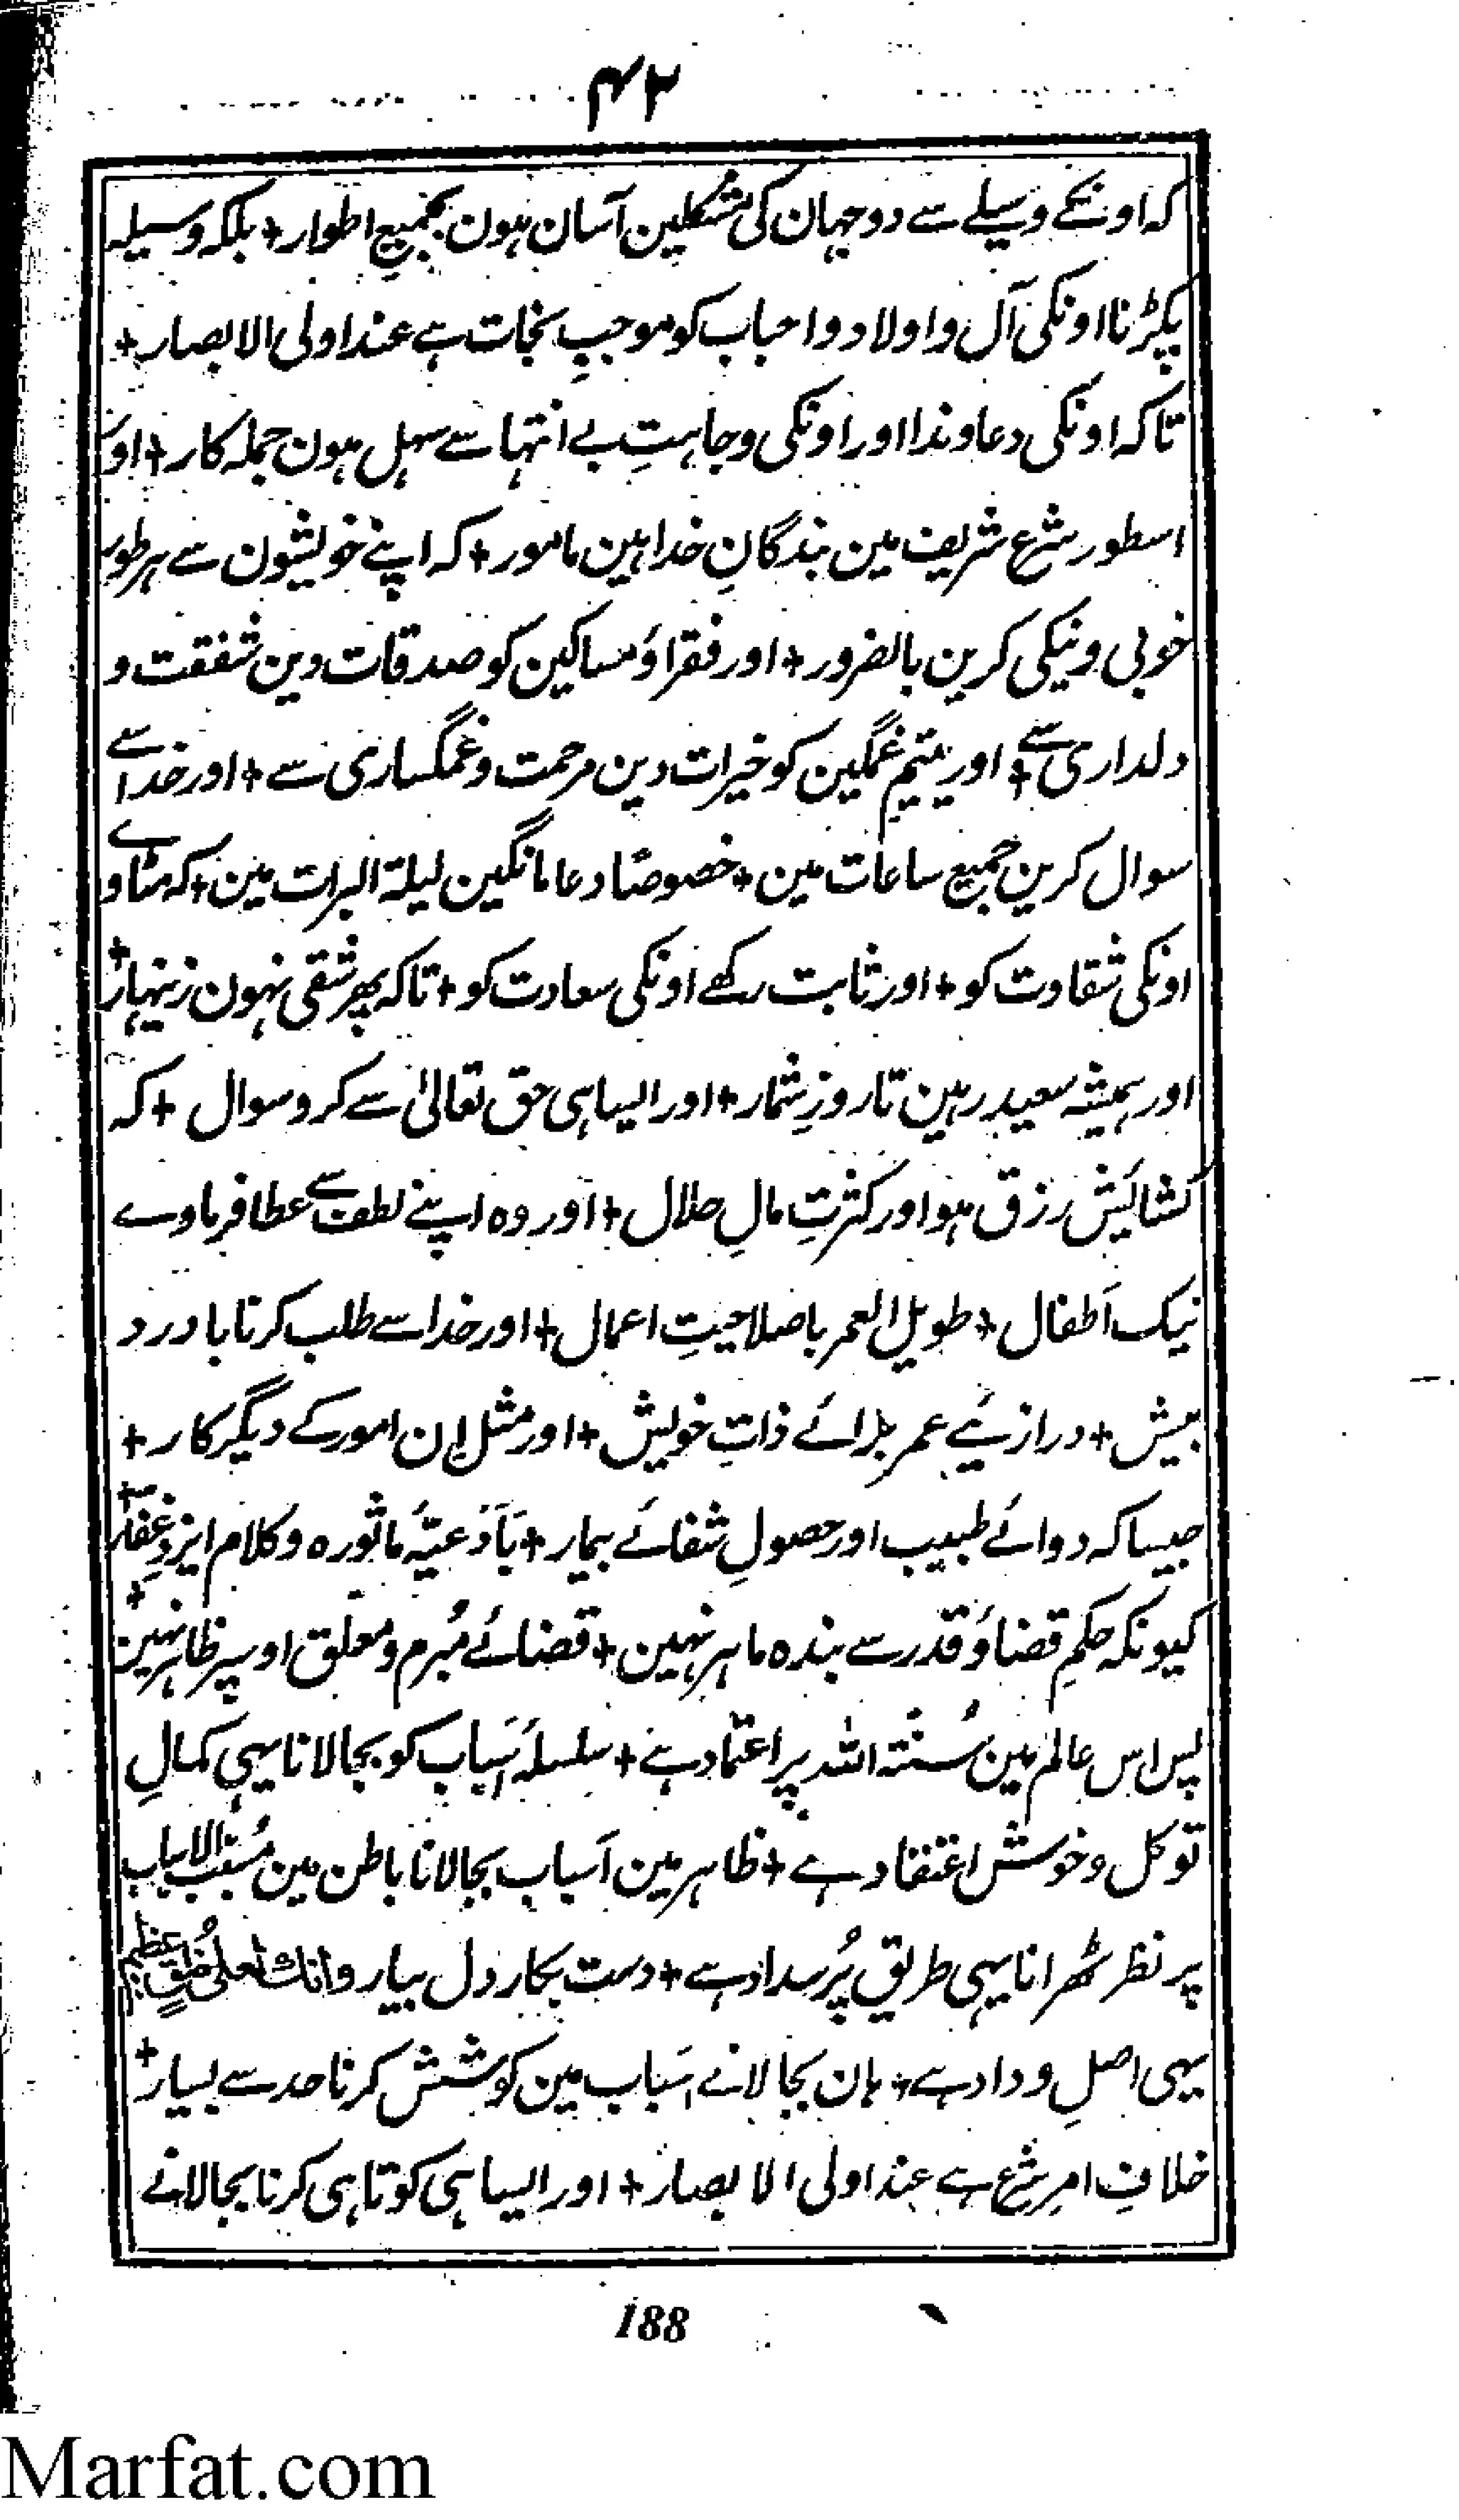 ۴۲
کہ اونکے وسیلے سے دو جہان کی مشکلین آسان ہون بجمیع اطوار + بلکہ وسیلہ
پکڑنا اونکی آل و اولاد و احباب کو موجبِ نجات ہے عند اولی الابصار +
تاکہ اونکی دعا و ندا اور اونکی وجاہتِ بے انتہا سے سہل ہون جملہ کار + اور
اسطور شرع شریف مین بندگانِ خدا ہین مامور + کہ اپنے خویشون سے ہر طور
خوبی و نیکی کرین بالضرور + اور فقراؤ مساکین کو صدقات دین شفقت و
دلداری سے + اور یتیم غمگین کو خیرات دین مرحمت و غمگساری سے + اور خدا سے
سوال کرین جمیع ساعات مین + خصوصًا دعا مانگین لیلۃ البرات مین + کہ مٹاوے
اونکی شقاوت کو + اور ثابت رکھے اونکی سعادت کو + تاکہ پھر شقی نہون زینہار +
اور ہمیشہ سعید رہین تا روزِ شمار + اور ایسا ہی حق تعالیٰ سے کرو سوال + کہ
کشایش رزق ہو اور کثرتِ مالِ حلال + اور وہ اپنے لطف سے عطا فرماوے
نیک اَطفال + طویل العمر باصلاحیتِ اعمال + اور خدا سے طلب کرنا بادرد
بیش + درازیِٔ عمر برائے ذاتِ خویش + اور مثل اِن امور کے دیگر کار +
جیسا کہ دوائے طبیب اور حصولِ شفائے بیمار + بَادَعیَّۂ ماثورہ و کلام ایزدِ غفّار +
کیونکہ حکمِ قضاؤ قدر سے بندہ ماہر نہین + قضائے مُبرم و معلق اوسپر ظاہر نہین +
پس اس عالم مین سُنۃ اللہ پر اعتماد ہے + سلسلۂ اَسباب کو بجا لانا یہی کمالِ
توکل و خوش اعتقاد ہے + ظاہر مین اَسباب بجالانا باطن مین مُسَبِّبُ الاسباب
پر نظر ٹھرانا یہی طریق پُر سداد ہے + دست بکار دل بیار وانک لعلی خُلقٍ عظیم
یہی اصلِ وداد ہے + ہان بجا لانے اَسباب مین کوشش کرنا حد سے بسیار +
خلافِ امرِ شرع ہے عند اولی الابصار + اور ایسا ہی کوتاہی کرنا بجالانے
188
Marfat.com